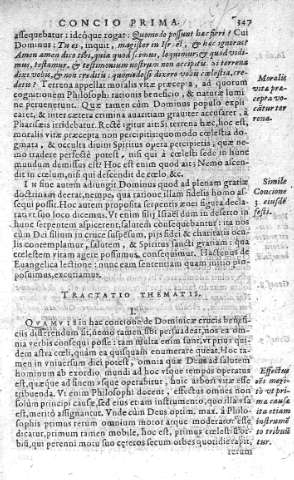 CONCIO PRIMA. 347
assequebatur: ideóque rogat: Quomodo possunt hæc fieri? Cui
Dominus: Tu es, inquit, magister in Israël, & hæc ignoras?
Amen amen dico tibi, quia quod scimus, loquimur, & quod vidi-
mus, testamur, & testimonium nostrum non accipitis. Si terrena
dixi vobis, & non creditis: quomodo si dixero vobis cœlestia, cre-
detis? Terrena appellat moralis vitæ præcepta, ad quorum
cognitionem Philosophi rationis beneficio, & naturæ lumi-
ne peruenerunt. Quæ tamen cùm Dominus populo expli-
caret, & inter cætera crimina auaritiam grauiter accusaret, à
Pharisæis irridebatur. Rectè igitur ait: Si terrena hæc, hoc est,
moralis vitæ præcepta non percipitis: quomodo cœlestia do-
gmata, & occulta diuini Spiritus opera percipietis, quæ ne-
mo tradere perfectè potest, nisi qui à cœlesti sede in hunc
mundum demissus est? Hoc est enim quod ait: Nemo ascen-
dit in cœlum, nisi qui descendit de cœlo, &c.
In fine autem adiungit Dominus quod ad plenam gratiæ
doctrinam deerat, nempe, qua ratione illam fidelis homo as-
sequi possit. Hoc autem proposita serpentis ænei figura decla-
rat vt suo loco dicemus. Vt enim filij Israël dum in deserto in
hunc serpentem aspicerent, salutem consequebantur: ita nos
cùm Dei filium in cruce suspensum, pijs fidei & charitatis ocu-
lis contemplamur, salutem, & Spiritus sancti gratiam: qua
cœlestem vitam agere possumus, consequimur. Hactenus de
Euangelica lectione: nunc eam sententiam quam initio pro-
posuimus, excutiamus.
Moralis
vitæ præ-
cepta vo-
catur ter
rena.
Simile
Concione
3. eiusdē
festi.
TRACTATIO THEMATIS.
I.
QVAMVIS in hac concione de Dominicæ crucis benefi-
cijs disserendum sit, nemo tamen sibi persuadeat, nos ea om-
nia verbis consequi posse: tam multa enim sunt, vt priùs qui-
dem astra cœli, quàm ea quisquam enumerare queat. Hoc ta-
men in vniuersum dici potest, omnia quæ Deus ad salutem
hominum ab exordio mundi ad hoc vsque tempus operatus
est, quæque ad finem vsque operabitur, huic arbori vitæ esse
tribuenda. Vt enim Philosophi docent, effectus omnes non
solùm principi causæ, sed eius etiam instrumento, quo illa vsa
est, meritò assignantur. Vnde cùm Deus optim. max. à Philo-
sophis primus rerum omnium motor atque moderator esse
dicatur, primum ramen mobile, hoc est, primus cœlestis or-
bis, qui perenni motu suo cæteros secum orbes quotidie rapit,
rerum
Effectus
nō merito
vt pri-
ma causa
ita etiam
instrumē
to tribuū
tur.